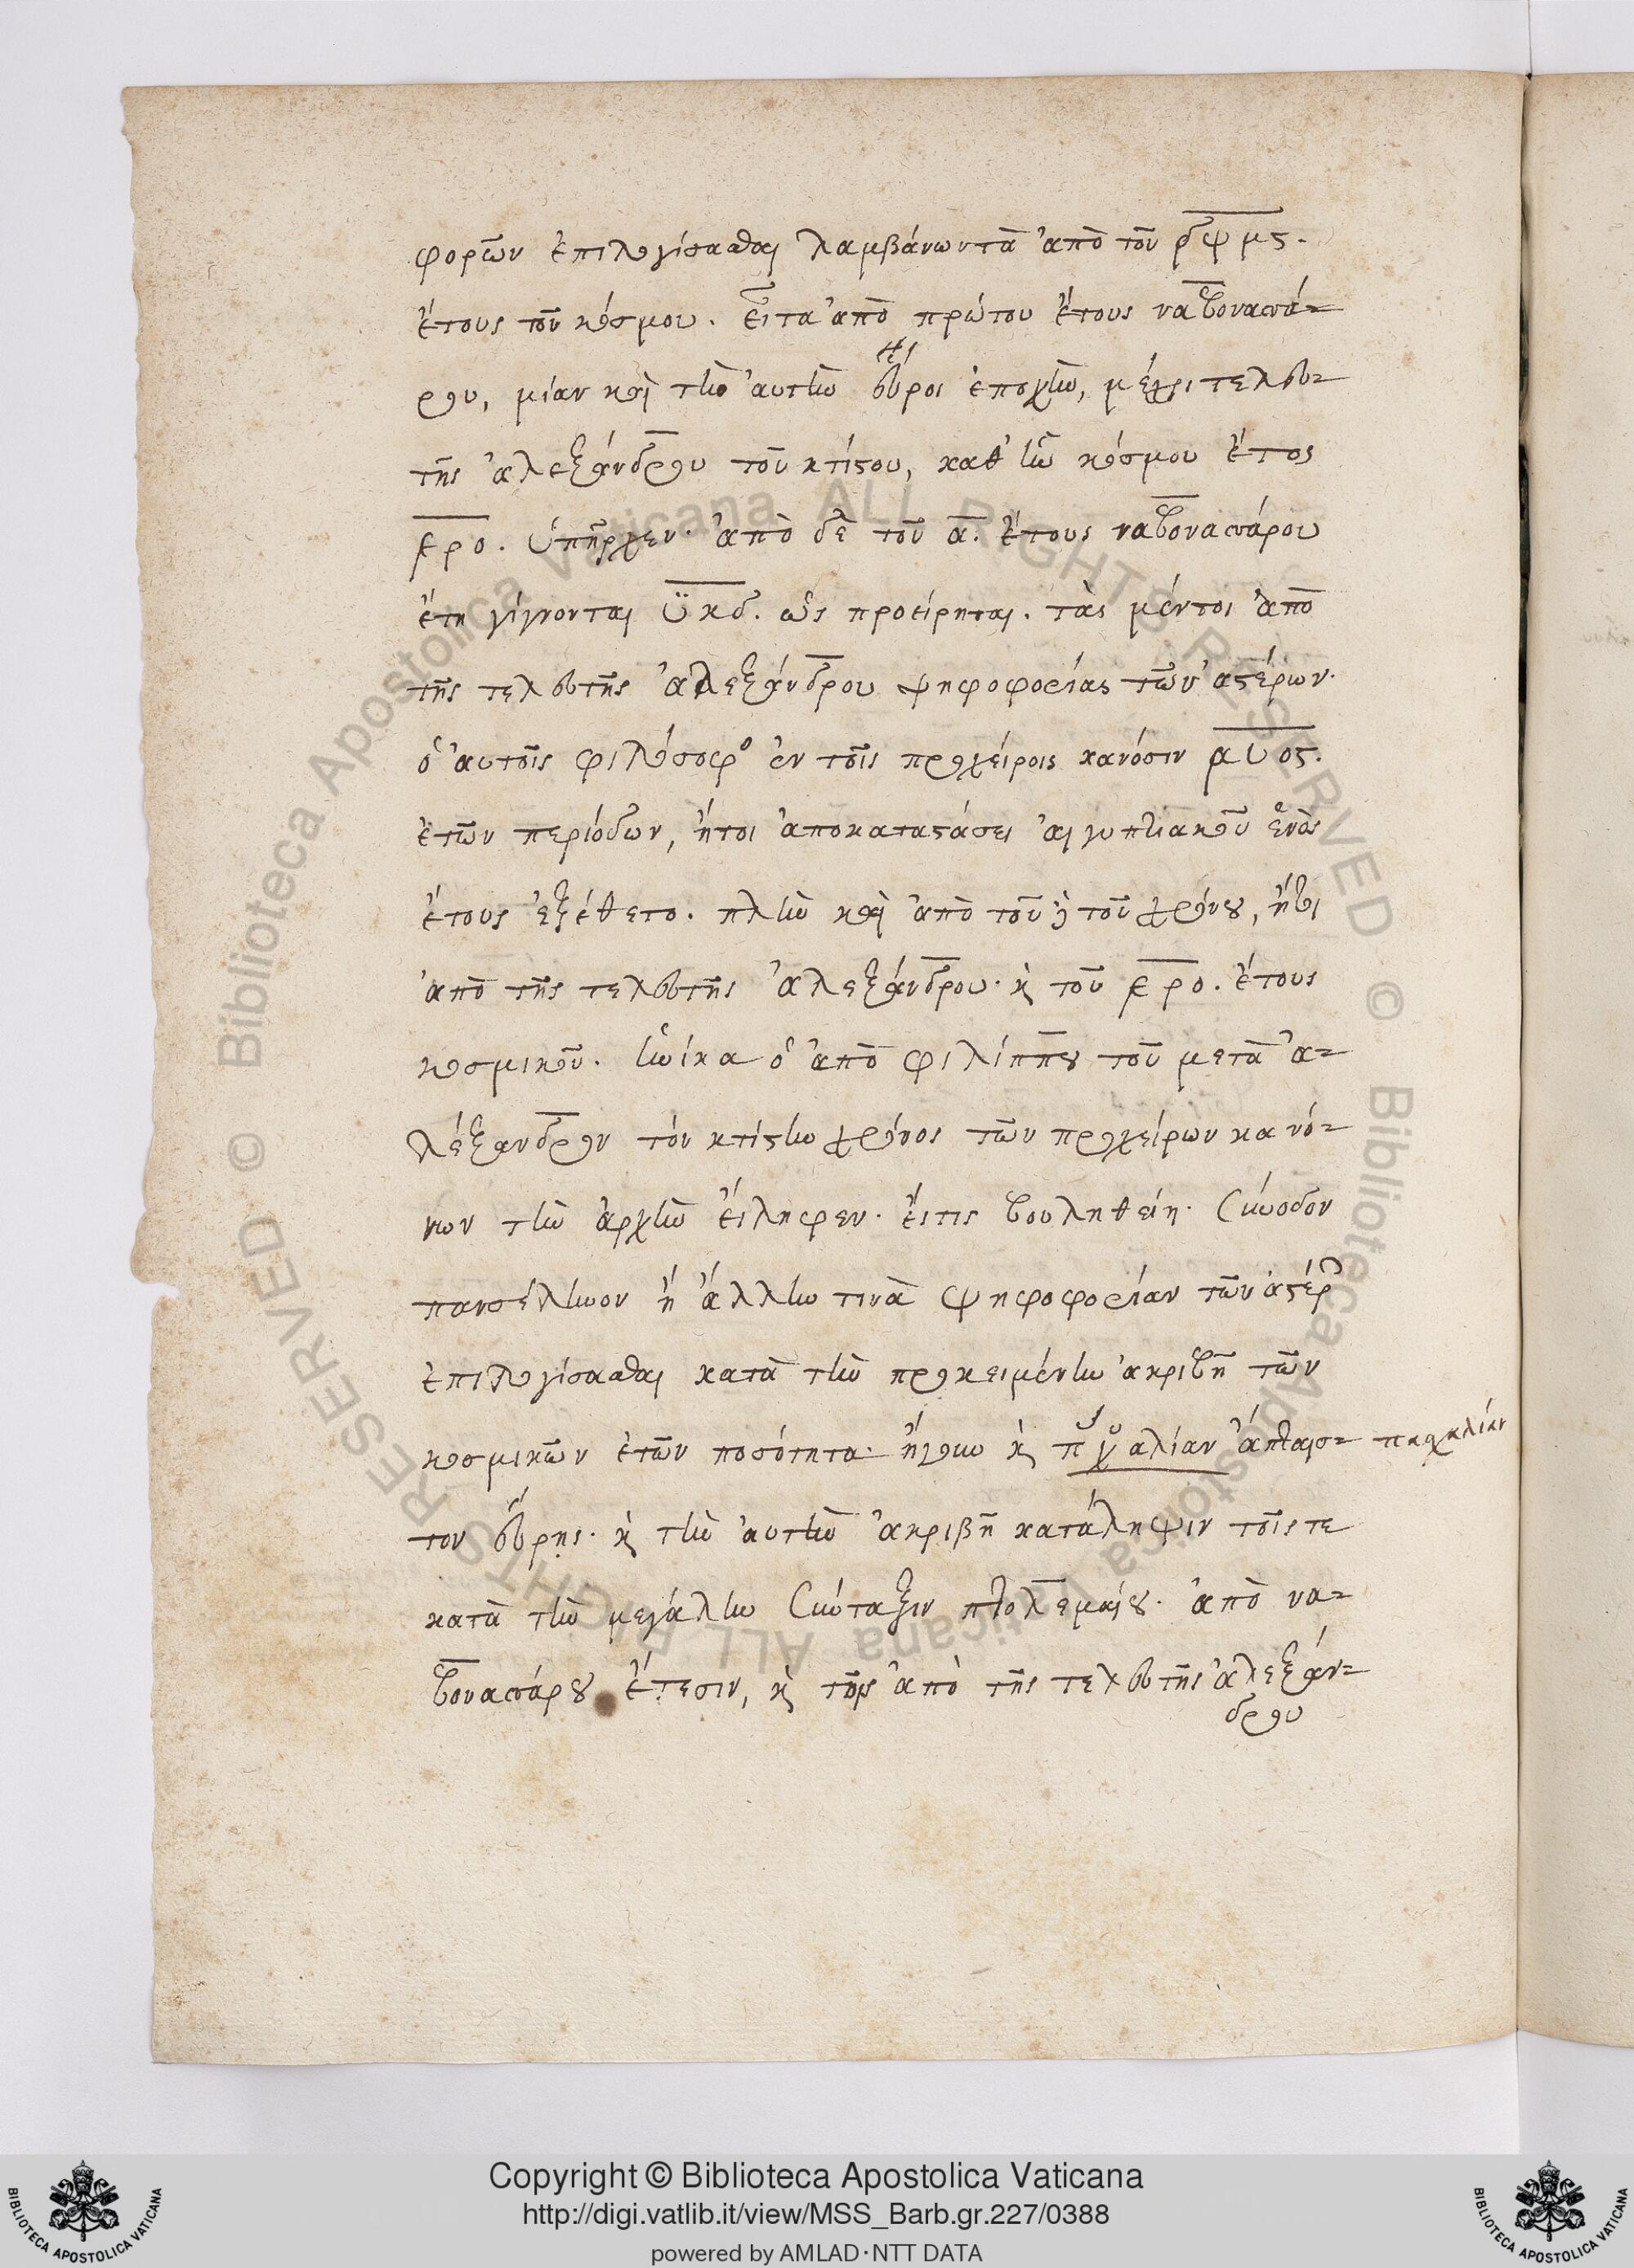 φορῶν ἐπιλογίσασθαι λαμβάνωντὰ ἀπὸ τοῦ ͵δψμϛ.
ἔτους τοῦ κόσμου. εἶτα ἀπὸ πρώτου ἔτους ναβονασά=
ρου, μίαν καὶ τὴν αὐτὴν εὕροι ἐποχὴν, μέχρι τελευ=
τῆς ἀλεξάνδρου τοῦ κτίστου, καθ' ἣν κόσμου ἔτος
͵ερο. ὑπῆρχεν· ἀπὸ δὲ τοῦ α. ἔτους ναβονασάρου
ἔτη γίγνονται υκδ. ὡς προείρηται. τὰς μέντοι ἀπὸ
τῆς τελευτῆς ἀλεξάνδρου ψηφοφορίας τῶν ἀστέρων·
ὁ αὐτοῖς φιλόσοφο ἐν τοῖς προχείροις κανόσιν ͵αυοϛ.
ἐτῶν περιόδων, ἤτοι ἀποκαταστάσει αἰγυπτιακοῦ ἑνὸς
ἔτους ἐξέθετο. πλὴν καὶ ἀπὸ τοῦ τοῦ χρόνου,
ἀπὸ τῆς τελευτῆς ἀλεξάνδρου· κ τοῦ ͵ερο. ἔτους
κοσμικοῦ. ἡνίκα ὁ ἀπὸ φιλίππου τοῦ μετὰ ἀ=
λέξανδρον τὸν κτίστην χρόνος τῶν προχείρων κανό=
νων τὴν ἀρχὴν εἴληφεν· εἴτις βουληθείη· σύνοδον
πανσέληνον ἢ ἄλλην τινὰ ψηφοφορίαν τῶν ἀστέρ
ἐπιλογίσασθαι κατὰ τὴν προκειμένην ἀκριβῆ τῶν
κοσμικῶν ἐτῶν ποσότητα· ἤγουν κ π χ αλίαν ἄπταισ= πασχαλίαν
τον εὕρῃς· κ τὴν αὐτὴν ἀκριβῆ κατάληψιν τοῖς τε
κατὰ τὴν μεγάλην σύνταξιν πτολεμαίου· ἀπὸ να=
βονασάρου ἔτεσιν, κ τοῖς ἀπὸ τῆς τελευτῆς ἀλεξάν=
δρου
Copyright © Biblioteca Apostolica Vaticana
http://digi.vatlib.it/view/MSS_Barb.gr.227/0388
powered by AMLAD·NTT DATA